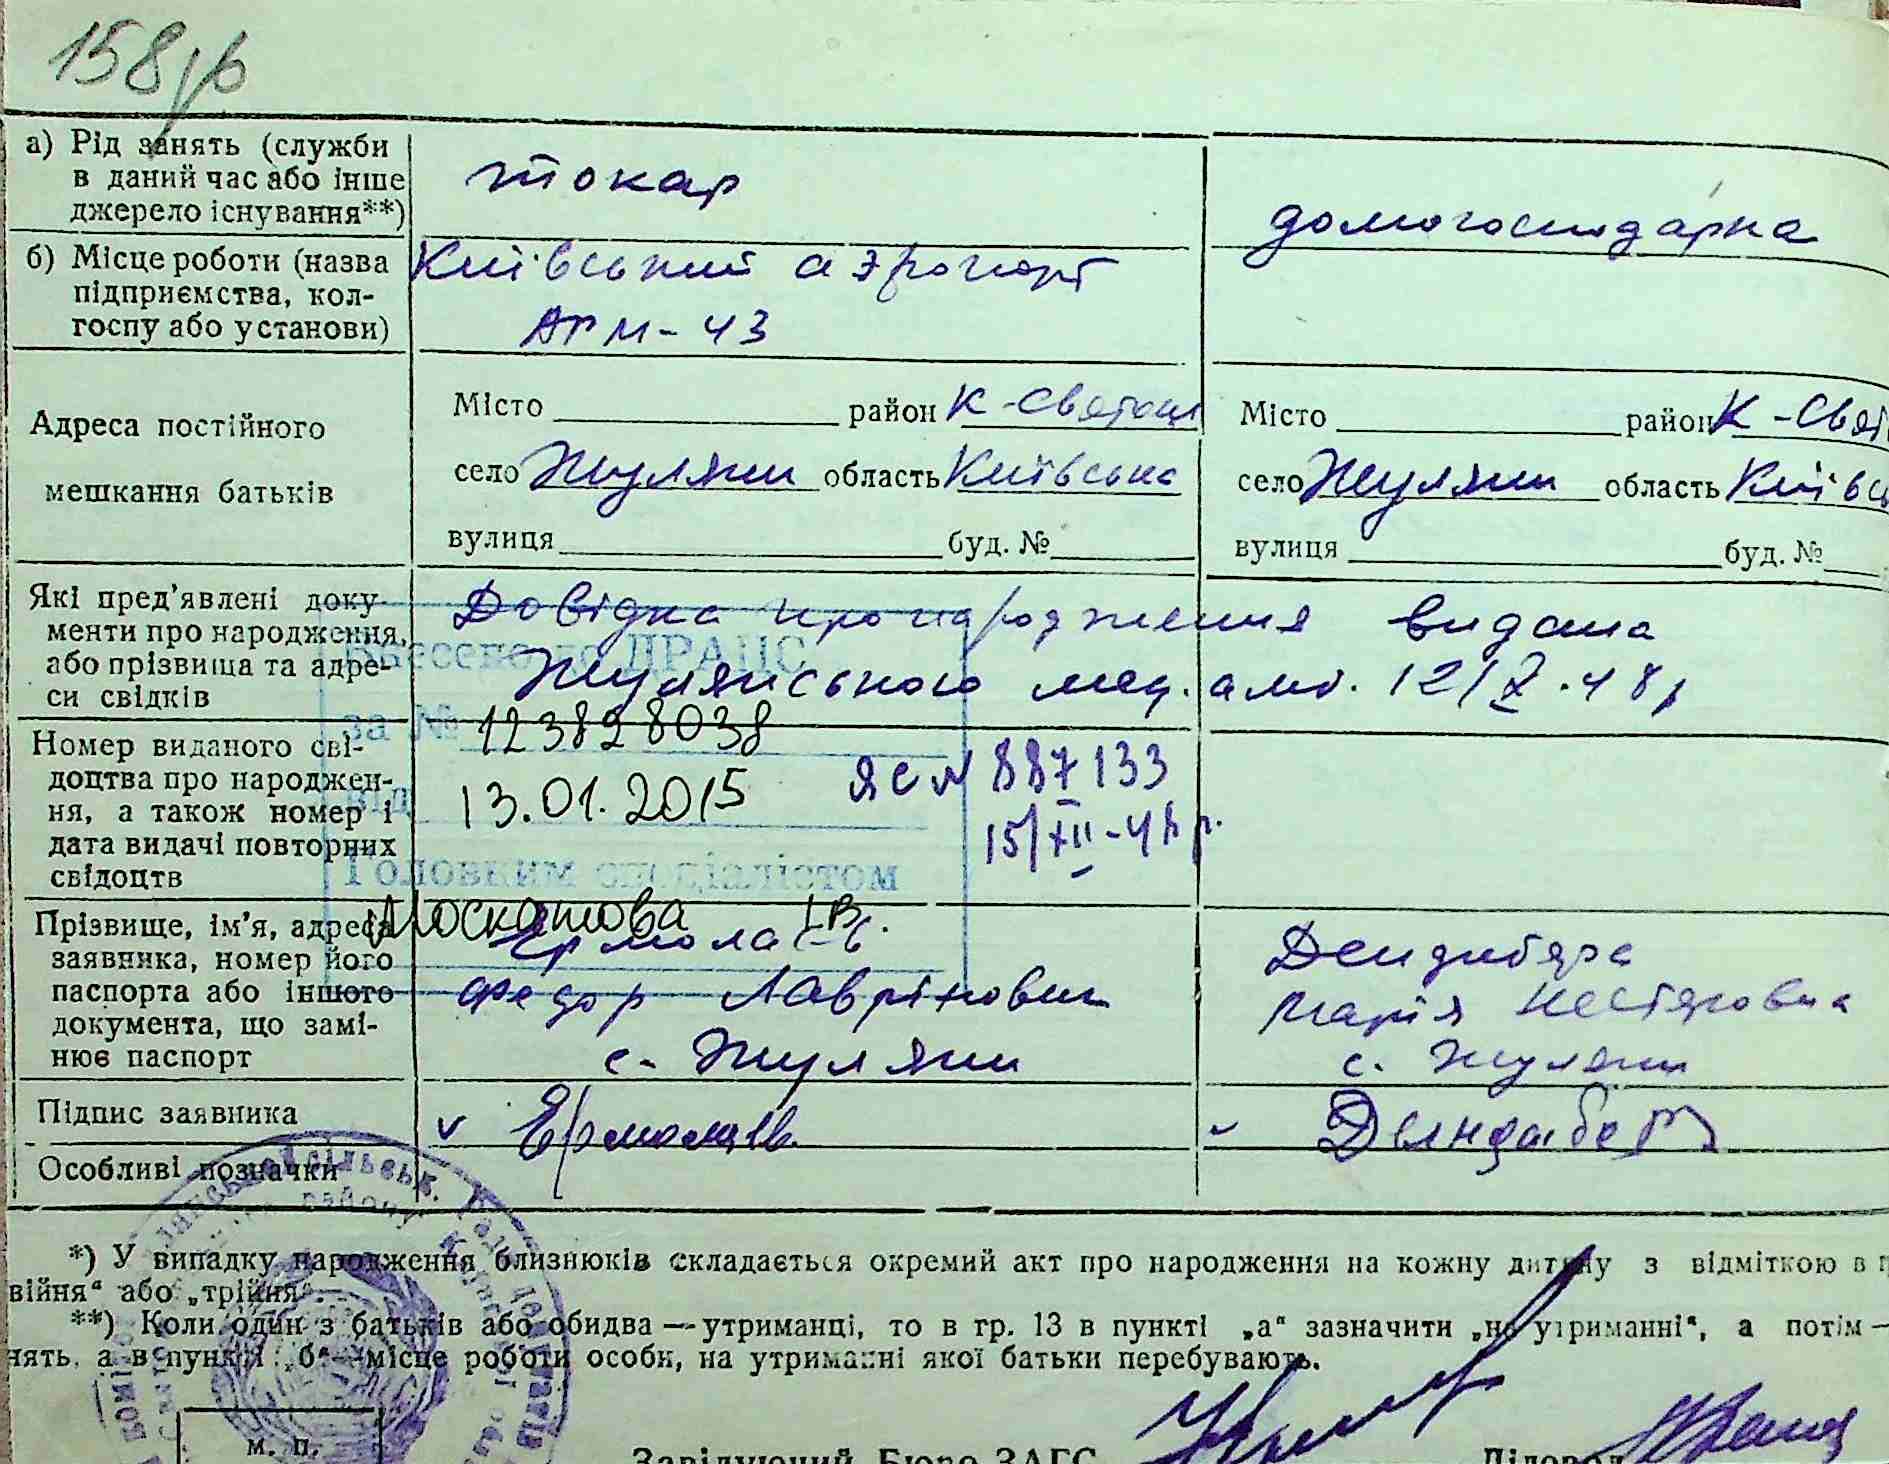 158 др
а) Рід занять (служби
в даний час або інше
джерело існування**)
токар
домогосподарка
б) Місце роботи (назва
підприємства, кол-
госпу або установи)
Київський аэропорт
АРМ-43
Адреса постійного
мешкання батьків
Місто район К-Святош
село Жуляни область Київська
вулиця буд. №
Місто район К-Свят
село Жуляни область Київсь
вулиця буд. №
Які пред'явлені доку-
менти про народження,
або прізвища та адре-
си свідків
Довідка про народження видана
Жулянського мед. амб. 12/X.48р
Внесено до ДРАЦС
за № 123828038
від 13.01.2015
Головним спеціалістом
Москатова І.В.
Номер виданого сві-
доцтва про народжен-
ня, а також номер і
дата видачі повторних
свідоцтв
ЯС № 887133
15/XII-48р.
Прізвище, ім'я, адреса
заявника, номер його
паспорта або іншого
документа, що замі-
нює паспорт
Єрмолаєв
Федор Лаврінович
с. Жуляни
Дендибера
Марія Нестеровна
с. Жуляни
Підпис заявника
v Ермолаев
Особливі позначки
*) У випадку народження близнюків складається окремий акт про народження на кожну дитину з відміткою в г
війня“ або „трійня“.
**) Коли один з батьків або обидва — утриманці, то в гр. 13 в пункті „а“ зазначити „на утриманні“, а потім —
нять, а в пункті „б“ — місце роботи особи, на утриманні якої батьки перебувають.
м. п.
Завідуючий Бюро ЗАГС
Діловод